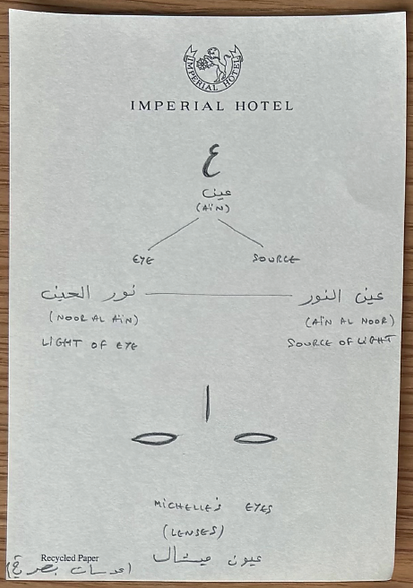 IMPERIAL HOTEL
IMPERIAL HOTEL
ع
عين
(AÏN)
EYE SOURCE
نور العين عين النور
(NOOR AL AÏN) (AÏN AL NOOR)
LIGHT OF EYE SOURCE OF LIGHT
MICHELLE'S EYES
(LENSES)
عيون ميشال
Recycled Paper
(عدسات بصرية)